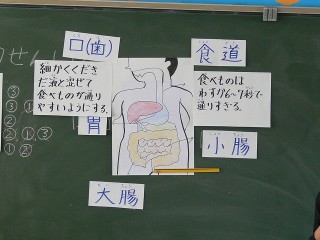 口(歯)
細かくくだき
だ液と混ぜて
食べものが通り
やすいようにする。
食道
食べものは
わずか6~7秒で
通りすぎる。
胃
小腸
大腸
③
③①
②
②①③
①②